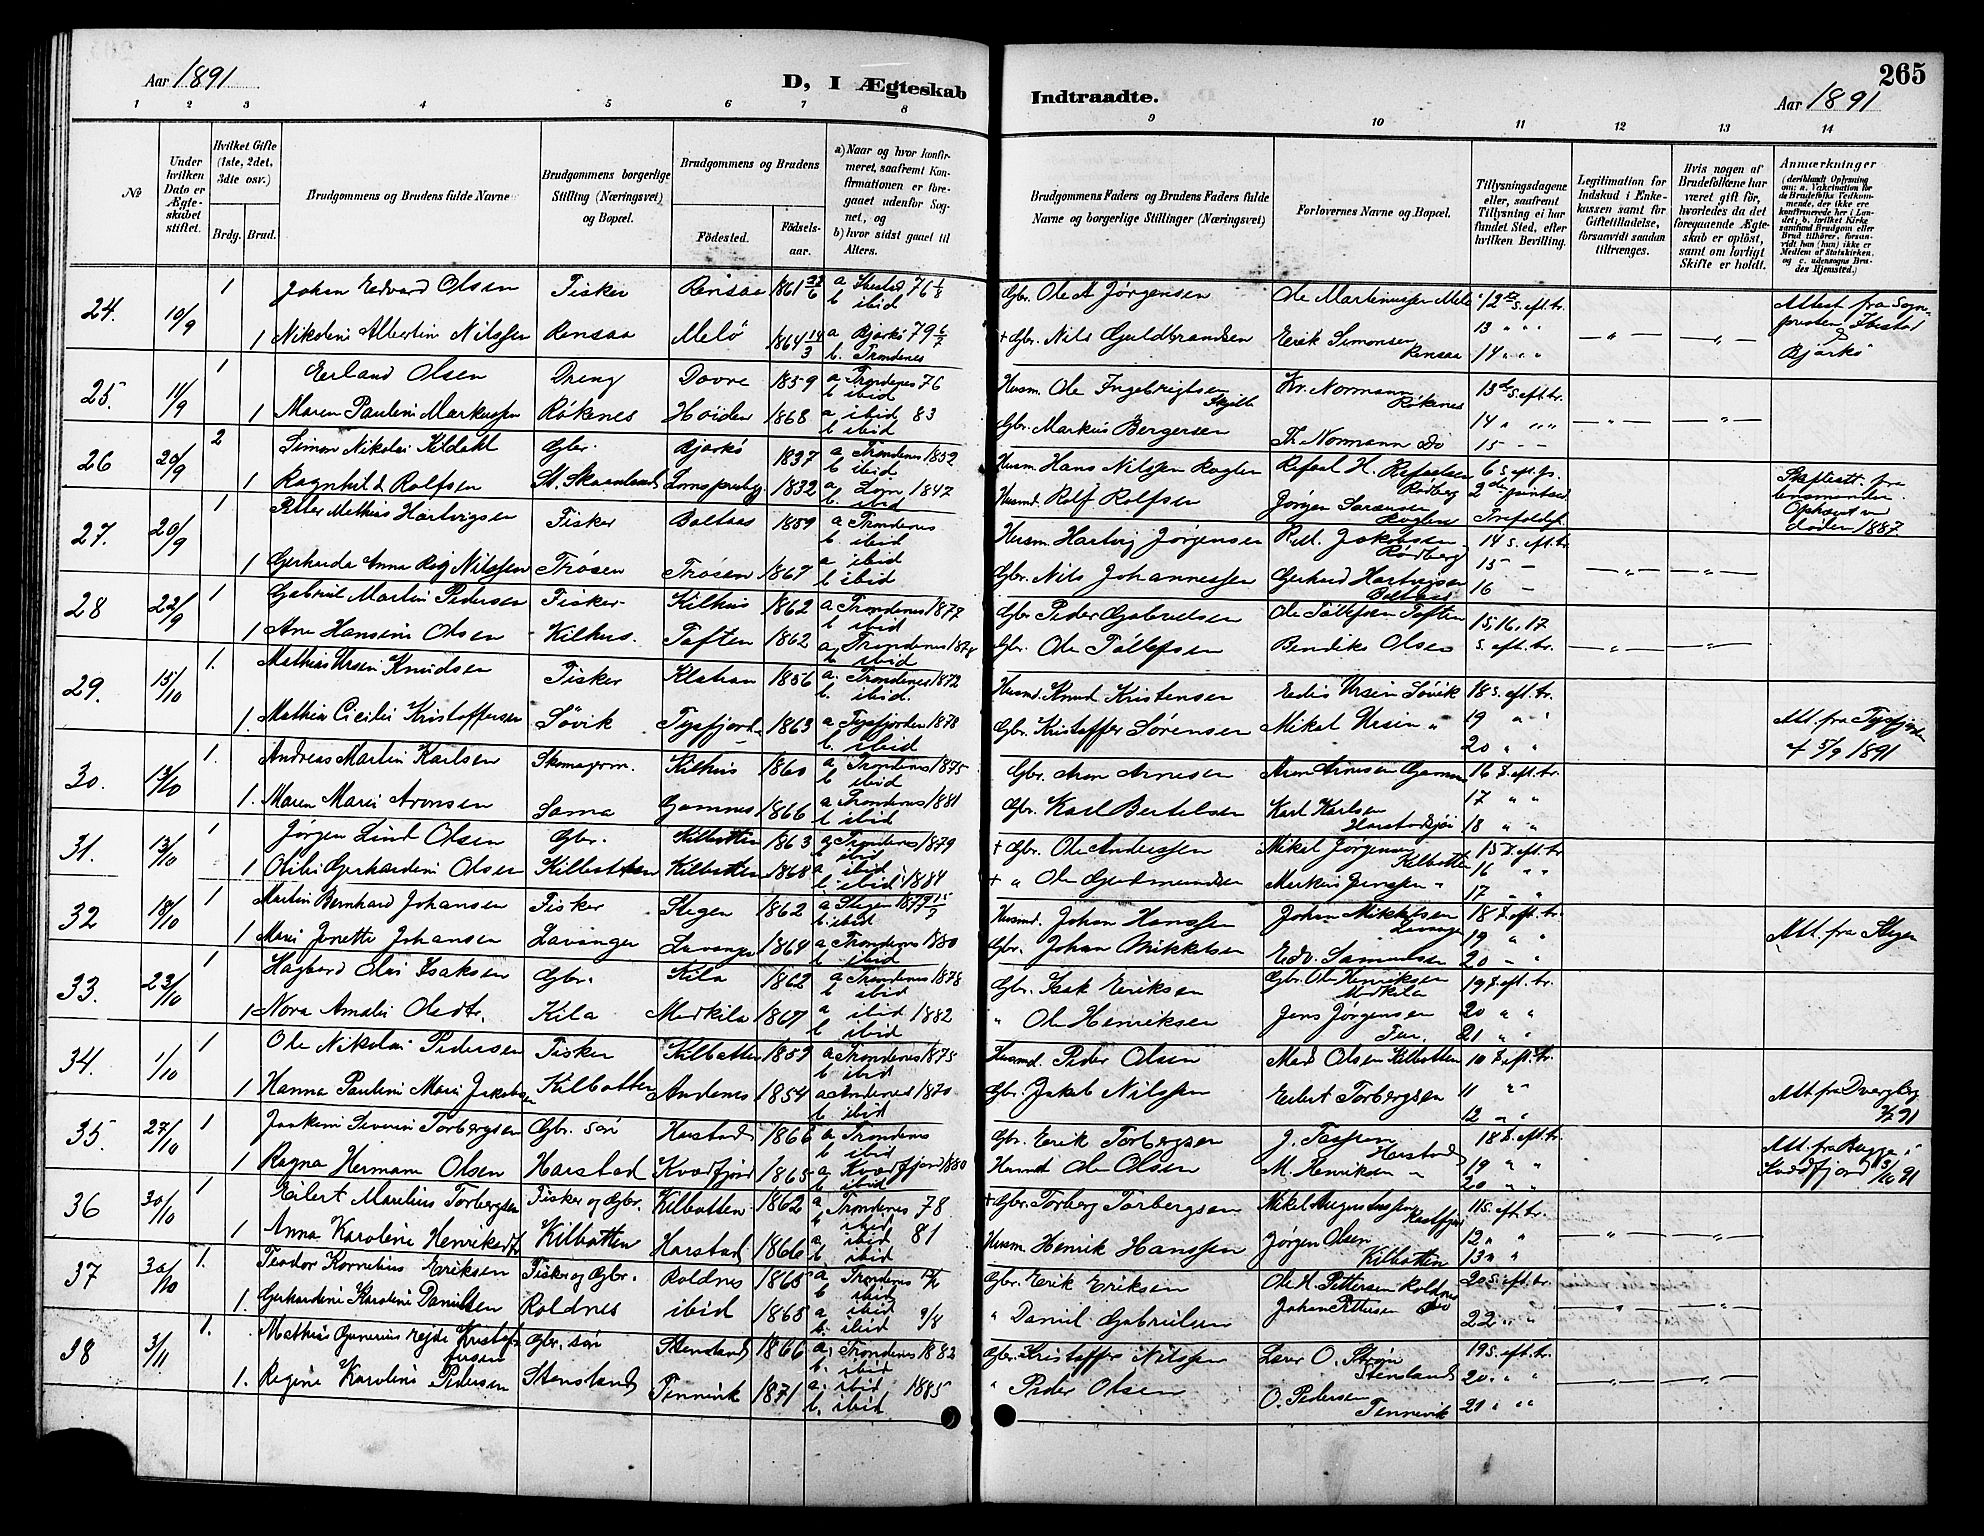 Aar 1891
D, I Ægteskab
Indtraadte.
265
Aar 1891
1 2 3 4 5 6 7 8 9 10 11 12 13 14
№
Under hvilken Dato er Ægteskabet stiftet.
Hvilket Gifte (1ste, 2det, 3die osv.)
Brdg. Brud.
Brudgommens og Brudens fulde Navne
Brudgommens borgerlige Stilling (Næringsvei) og Bopæl.
Brudgommens og Brudens
Födested.
Födselsaar.
a) Naar og hvor konfirmeret, saafremt Konfirmationen er foregaaet udenfor Sognet, og
b) hvor sidst gaaet til Alters.
Brudgommens Faders og Brudens Faders fulde Navne og borgerlige Stillinger (Næringsvei)
Forlovernes Navne og Bopæl.
Tillysningsdagene eller, saafremt Tillysning ei har fundet Sted, efter hvilken Bevilling.
Legitimation for Indskud i Enkekassen samt for Giftetilladelse, forsaavidt saadan tiltrænges.
Hvis nogen af Brudefolkene har været gift før, hvorledes da det foregaaende Ægteskab er opløst, samt om lovligt Skifte er holdt.
Anmærkninger
24. 10/9 1 Johan Edvard Olsen Fisker Rensaa 1861 22/6 a Ibestad 76 b ibid Gbr. Ole A Jørgensen Ole Martinussen Melö 12te S. eft. tr. Attest fra Sogne-
1 Nikoline Albertin Nilssen Rensaa Melö 1864 14/3 a Bjarkö 79 b. Trondenes + Gbr. Nils Guldbrandsen Erik Simonsen Rensaa 13 14 presten i Ibestad & Bjarkö
25. 11/9 1 Erland Olsen Dreng Dovre 1859 a Trondenes 76 b ibid Husm. Ole Ingebrigtsen Kr. Normann Røkenes 13de S. eft. tr.
1 Maren Pauline Markussen Røkenes Hoiden 1868 a ibid 83 b ibid Gbr. Markus Bergersen Th. Normann do 14 15
26 20/9 2 Simon Nikolai Kildahl Gbr. Bjarkö 1837 a Trondenes 1852 b ibid Husm. Hans Nilssen Refsal H. Refsalsen Rødberg 6 S. eft. p.
1 Ragnhild Rolfsen St. Skaanland 1832 a Lom 1847 b ibid Husmd. Rolf Rolfsen Jörgen Sørensen 2den pintsed. Trefoldigh.
27. 20/9 1 Petter Mathias Hartvigsen Fisker Boltaas 1859 a Trondenes b ibid Husm. Hartvig Jørgensen Jakobsen Rødberg 14 S. eft. tr. døden 1887.
1 Gerharda Anna Nilssen Trøsen Trøsen 1867 a ibid b ibid Gbr. Nils Johannessen Gerhard Hartvigsen Boltaas 15 16
28 22/9 1 Gabriel Martin Pedersen Fisker Kilhus 1862 a Trondenes 1878 b ibid Gbr. Peder Gabrielsen Ole Tollefsen Toften 15, 16, 17
1 Ane Hansine Olsen Kilhus. Toften 1862 a Trondenes 1878 b ibid Gbr. Ole Tollefsen Bendiks Olsen S. eft. tr.
29. 15/10 1. Mathias Ursin Knudsen Fisker 1856 a. Trondenes 1872 b. ibid. Husmd. Knud Kristensen Edis Ursin Søvik 18 S. eft. tr.
1. Mathia Cicilie Kristoffersen Søvik Tysfjord 1863 a Tysfjorden 1878 b ibid Gbr. Kristoffer Sørensen Mikal Ursin " 19 20 Att. fra Tysfjorden af 5/9 1891
30. 13/10 1. Andreas Martin Karlsen Skomagerm. Kilhus 1860 a Trondenes 1875 b ibid Gbr. Aron Arnesen Aron Arnesen 16 S. eft. tr.
1. Maren Marie Aronsen Sama Gamnes 1866 a Trondenes 1881 b ibid Gbr. Karl Bertelsen Karl Karlsen Harstadsjøen 17 18
31. 13/10 1 Jørgen Lind Olsen Gbr. Kilbotten 1863 a Trondenes 1879 b ibid + Gbr. Ole Andersen Mikal Jørgensen Kilbotten 15 S. eft. tr.
1 Otilie Gerhardine Olsen Kilbotten Kilbotten 1868 a ibid b ibid 1884 + " Ole Gudmundsen Markus Jenssen " 16 17
32 18/10 1 Martin Bernhard Johansen Fisker Stegen 1862 a Stegen 1877 b. ibid Husmd. Johan Hanssen Johan Mikkelsen Lavangen 18 S. eft. tr.
1 Marie Jenette Johansen Lavangen Lavangen 1864 a Trondenes 1880 b ibid Gbr. Johan Mikkelsen Edv. Samuelsen 19 20 Att. fra Stegen
33. 23/10 1 Hagbard Olai Isaksen Gbr. Kila 1862 a Trondenes 1878 b ibid Gbr. Isak Eriksen Gbr. Ole Henriksen Medkila 19 S. eft. tr.
1 Nora Amalie Olsdtr. Kila Medkila 1867 a ibid 1882 b ibid " Ole Henriksen Jens Jørgensen 20 21
34. 1/10 1 Ole Nikolai Pedersen Fisker Kilbotten 1859 a Trondenes 1875 b ibid Husmd. Peder Olsen Mad Olsen Kilbotten 10 S. eft. tr.
1 Hanna Pauline Marie Jakobsen Kilbotten Andenes 1854 a Andenes 1870 b. ibid Gbr. Jakob Nilssen Eilert Torbergsen 11 12 Att. fra Dverberg 91
35. 27/10 1 Joakim Severin Torbergsen Gbr. søn Harstad 1866 a. Trondenes b ibid Gbr. Erik Torbergsen J. Harstad 18 S. eft. tr. Att. fra
1 Ragna Hermane Olsen Harstad Kvædfjord 1865 a. Kvædfjord 1880 b ibid Husmd Ole Olsen M. Henriksen " 19 20 91
36 30/10 1 Eilert Marelius Torbergsen Fisker og Gbr. Kilbotten 1862 a Trondenes 78 b ibid + Gbr. Torberg Torbergsen Mikal Augustinussen 11 S. eft. tr.
1 Anna Karoline Henriksdtr Kilbotten Harstad 1866 a. ibid 81 b. ibid Husm. Henrik Hanssen Jørgen Olsen Kilbotten 12 13
37 30/10 1. Teodor Kornelius Eriksen Fisker og Gbr. Roldnes 1865 a Trondenes b ibid Gbr. Erik Eriksen Ole A. Pettersen Roldnes 20 S. eft. tr.
1. Gerhardine Karoline Danielsen Roldnes ibid 1865 a ibid b. ibid " Daniel Gabrielsen Johan Pettersen do 22
38 3/11 1. Mathias Gunerius Kristoffersen Gbr. søn Stensland 1866 a. Trondenes 1882 b. ibid Gbr. Kristoffer Nilssen Laur O. Strøm Stensland 19 S. eft. tr.
1. Regine Karoline Pedersen Stensland Tennevik 1871 a. ibid 1885 b. ibid " Peder Olsen O. Pedersen Tennevik 20 21